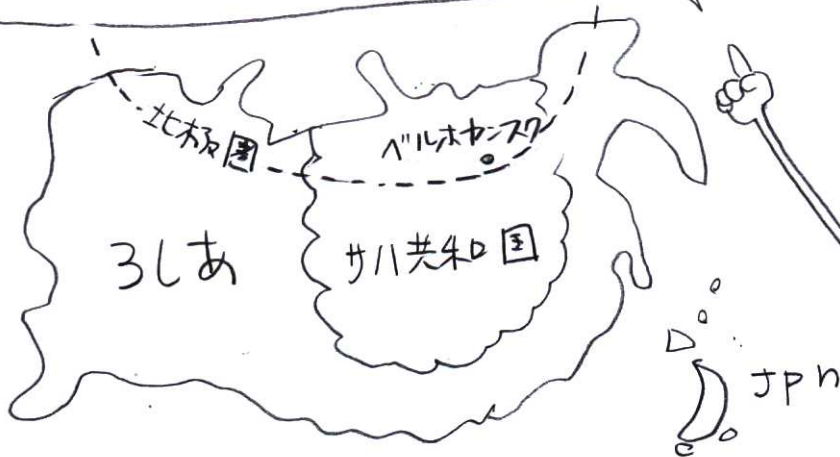 北極圏
ベルホヤンスク
ろしあ
サハ共和国
JPN